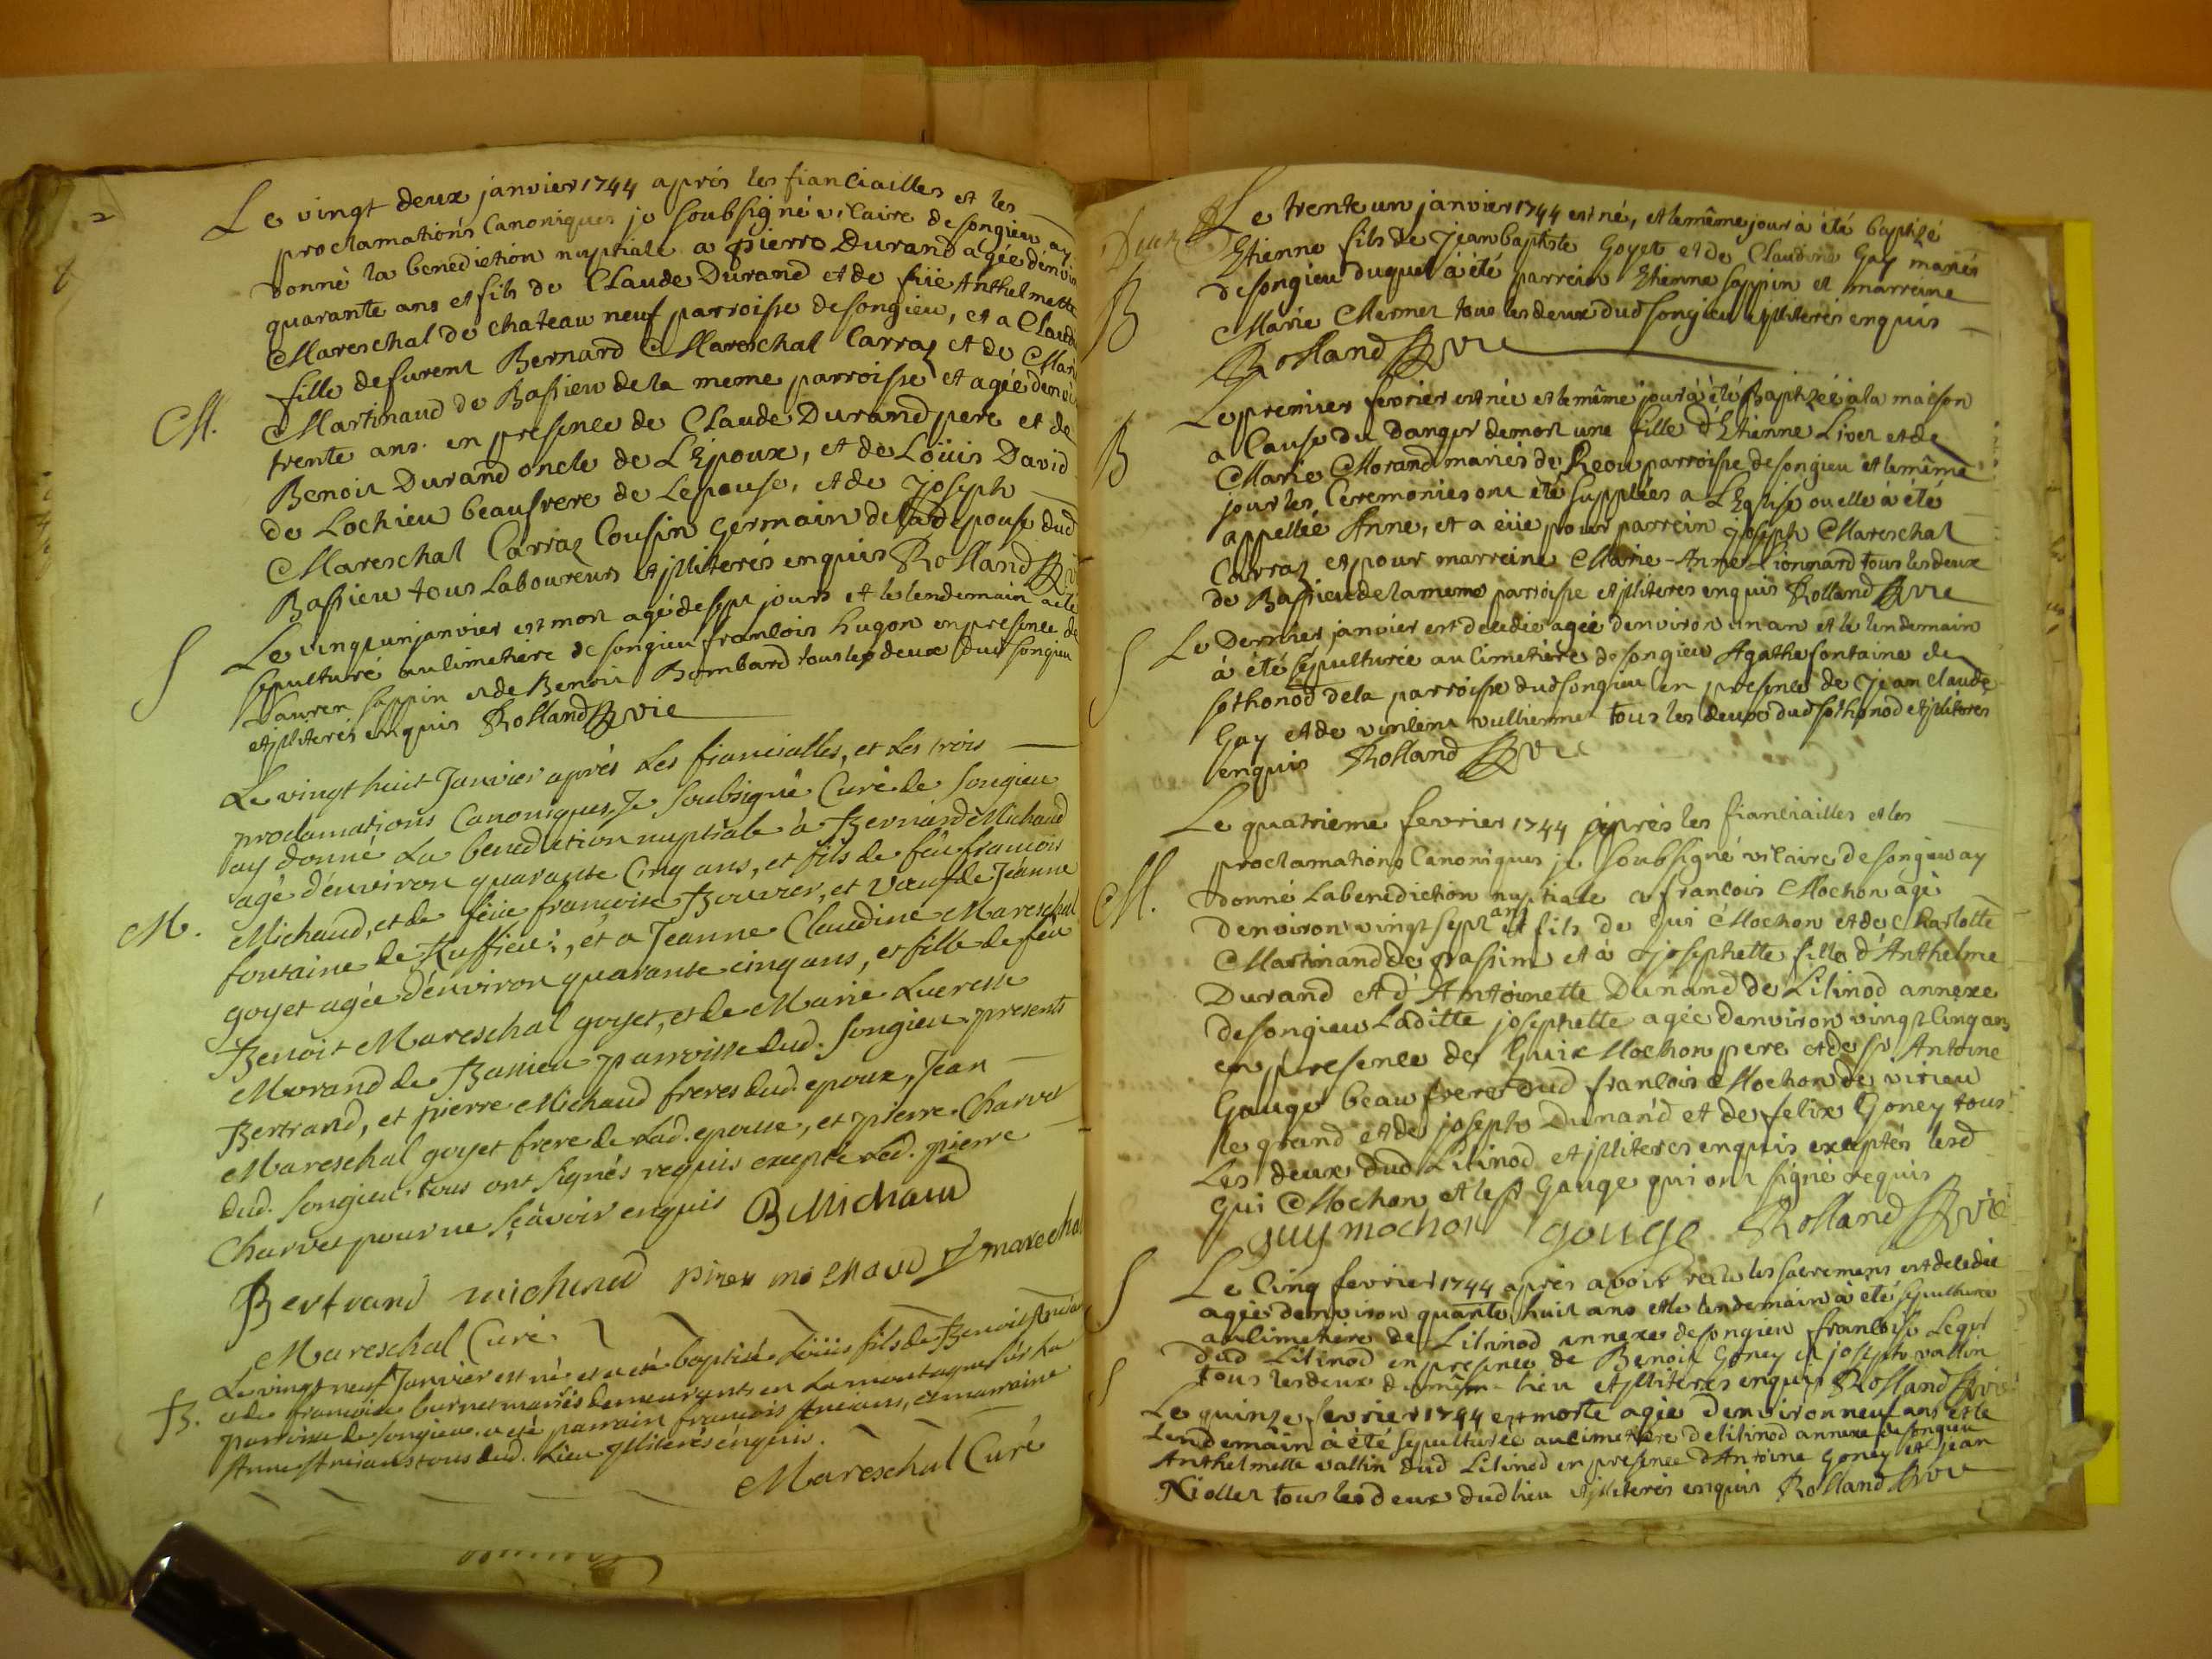 2
Le vingt deux janvier 1744 aprés les fianciailles et les
proclamations Canoniques je soubsigné vicaire de songieu ay
donné la benediction nuptiale a pierre Durand agée d'envir
quarante ans et fils de Claude Durand et de füe Anthelmette
Mareschal de chateau neuf parroisse de songieu, et a Claud
fille de furent Bernard Mareschal Carraz et de Mari
M.
Martinaud de Bassieu de la meme parroisse et agée d'envi
trente ans. en presence de Claude Durand pere et de
Benoit Durand oncle de L'Epoux, et de Loüis David
de Lochieu beaufrere de Lepouse, et de Joseph
Mareschal Carraz Cousin germain de lad epouse dud
Bassieu tous Laboureurs et jlliterés enquis Rolland vi
S
Le vingt un janvier est mort agé de sept jours et le lendemain a eté
sepulturé au cimetiere de songieu francois hugon en presence de
Lauren sappin et de Benoit Bombard tous les deux dud songieu
et jlliterés enquis Rolland vic
Le vingt huit Janvier aprés Les fiancialles, et Les trois
proclamations Canoniques, Je soubsigné Curé de songieu
ay donné La benediction nuptiale à Bernard Michaud
agé d'environ quarante Cinq ans, et fils de feu francois
M.
Michaud, et de feüe francoise Bouvier, et veuf de Jeanne
fontaine de Ruffieu, et a Jeanne Claudine Mareschal
goyet agée d'environ quarante cinq ans, et fille de feu
Benoit Mareschal goyet, et de Marie Lucresse
Morand de Bassieu parroisse dud. songieu, presents
Bertrand, et pierre Michaud freres dud. epoux, Jean
Mareschal goyet frere de Lad. epouse, et pierre Charvet
dud. songieu. tous ont signés requis excepté Led. pierre
Charvet pour ne sçavoir enquis B Michaud
Bertrand michaud pirex michaud J marechal
Mareschal Curé
Le vingt neuf Janvier est né et a eté baptisé Loüis fils de Benoit
B.
et de francoise burnet mariés demeurants en La montagne
parroisse de songieu. a eté parrain francois et marraine
Anne tous dud. Lieu jlliterés enquis.
Mareschal Curé
Deux
Le trente un janvier 1744 est né, et le même jour à été baptizé
Etienne fils de Jean baptiste Goyet et de Claudine Gay mariés
B
de songieu duquel à été parrein Etienne sappin et marreine
Marie Mermet tous les deux dud songieu jlliterés enquis
Rolland vic
Le premier fevrier est née et le même jour à été Baptizée a la maison
B
a Cause du danger de mort une fille d'Etienne Livet et de
Marie Morand mariés de Reou parroisse de songieu et le même
jour les Ceremonies ont été supplées a L'Eglise ou elle à été
appellée Anne, et a eüe pour parrein joseph Mareschal
Carraz et pour marreine Marie-Anne Lionnard tous les deux
de Bassieu de la meme parroisse et jlliteres enquis Rolland vic
S
Le Dernier janvier est decedée agée d'environ un an et le lendemain
à été sepulturée au Cimetiere de songieu Agathe fontaine de
sothonod de la parroisse dud songieu en presence de Jean claude
Gay et de vincent vulliermet tous les deux dud sothonod et jlliteres
enquis Rolland vic
Le quatrieme fevrier 1744 aprés les fianciailles et les
proclamations Canoniques je soubsigné vicaire de songieu ay
M.
donné la benediction nuptiale a francois Mochon agé
d'environ vingt sept ans et fils de Gui Mochon et de Charlotte
Martinand de passim et à josephette fille d'Anthelme
Durand et d'Antoinette Dunand de Lilinod annexe
de songieu Laditte josephette agée d'environ vingt Cinq ans
en presence de Gui Mochon pere et de sr. Antoine
Gouge beau frere dud francois Mochon de virieu
le grand et de joseph Dunand et de felix Goney tous
Les deux dud Lilinod et jlliteres enquis exceptés lesd
Gui Mochon et le sr Gouge qui ont signé requis
guy mochon gouge Rolland vic
S
Le Cinq fevrier 1744 aprés avoir recu les sacremens est decedée
agée d'environ quarante huit ans et le lendemain à été sepulturée
au Cimetiere de Lilinod annexe de songieu francoise Legot
dud Lilinod en presence de Benoit Goney et joseph vallin
tous les deux du même lieu et jlliteres enquis Rolland vic
S
Le quinze fevrier 1744 est morte agée d'environ neuf ans et le
Lendemain à été sepulturée au cimetiere de lilinod annexe de songieu
Anthelmette vallin dud Lilinod en presence d'Antoine Goney et jean
Niollet tous les deux dud lieu et jlliterés enquis Rolland vic